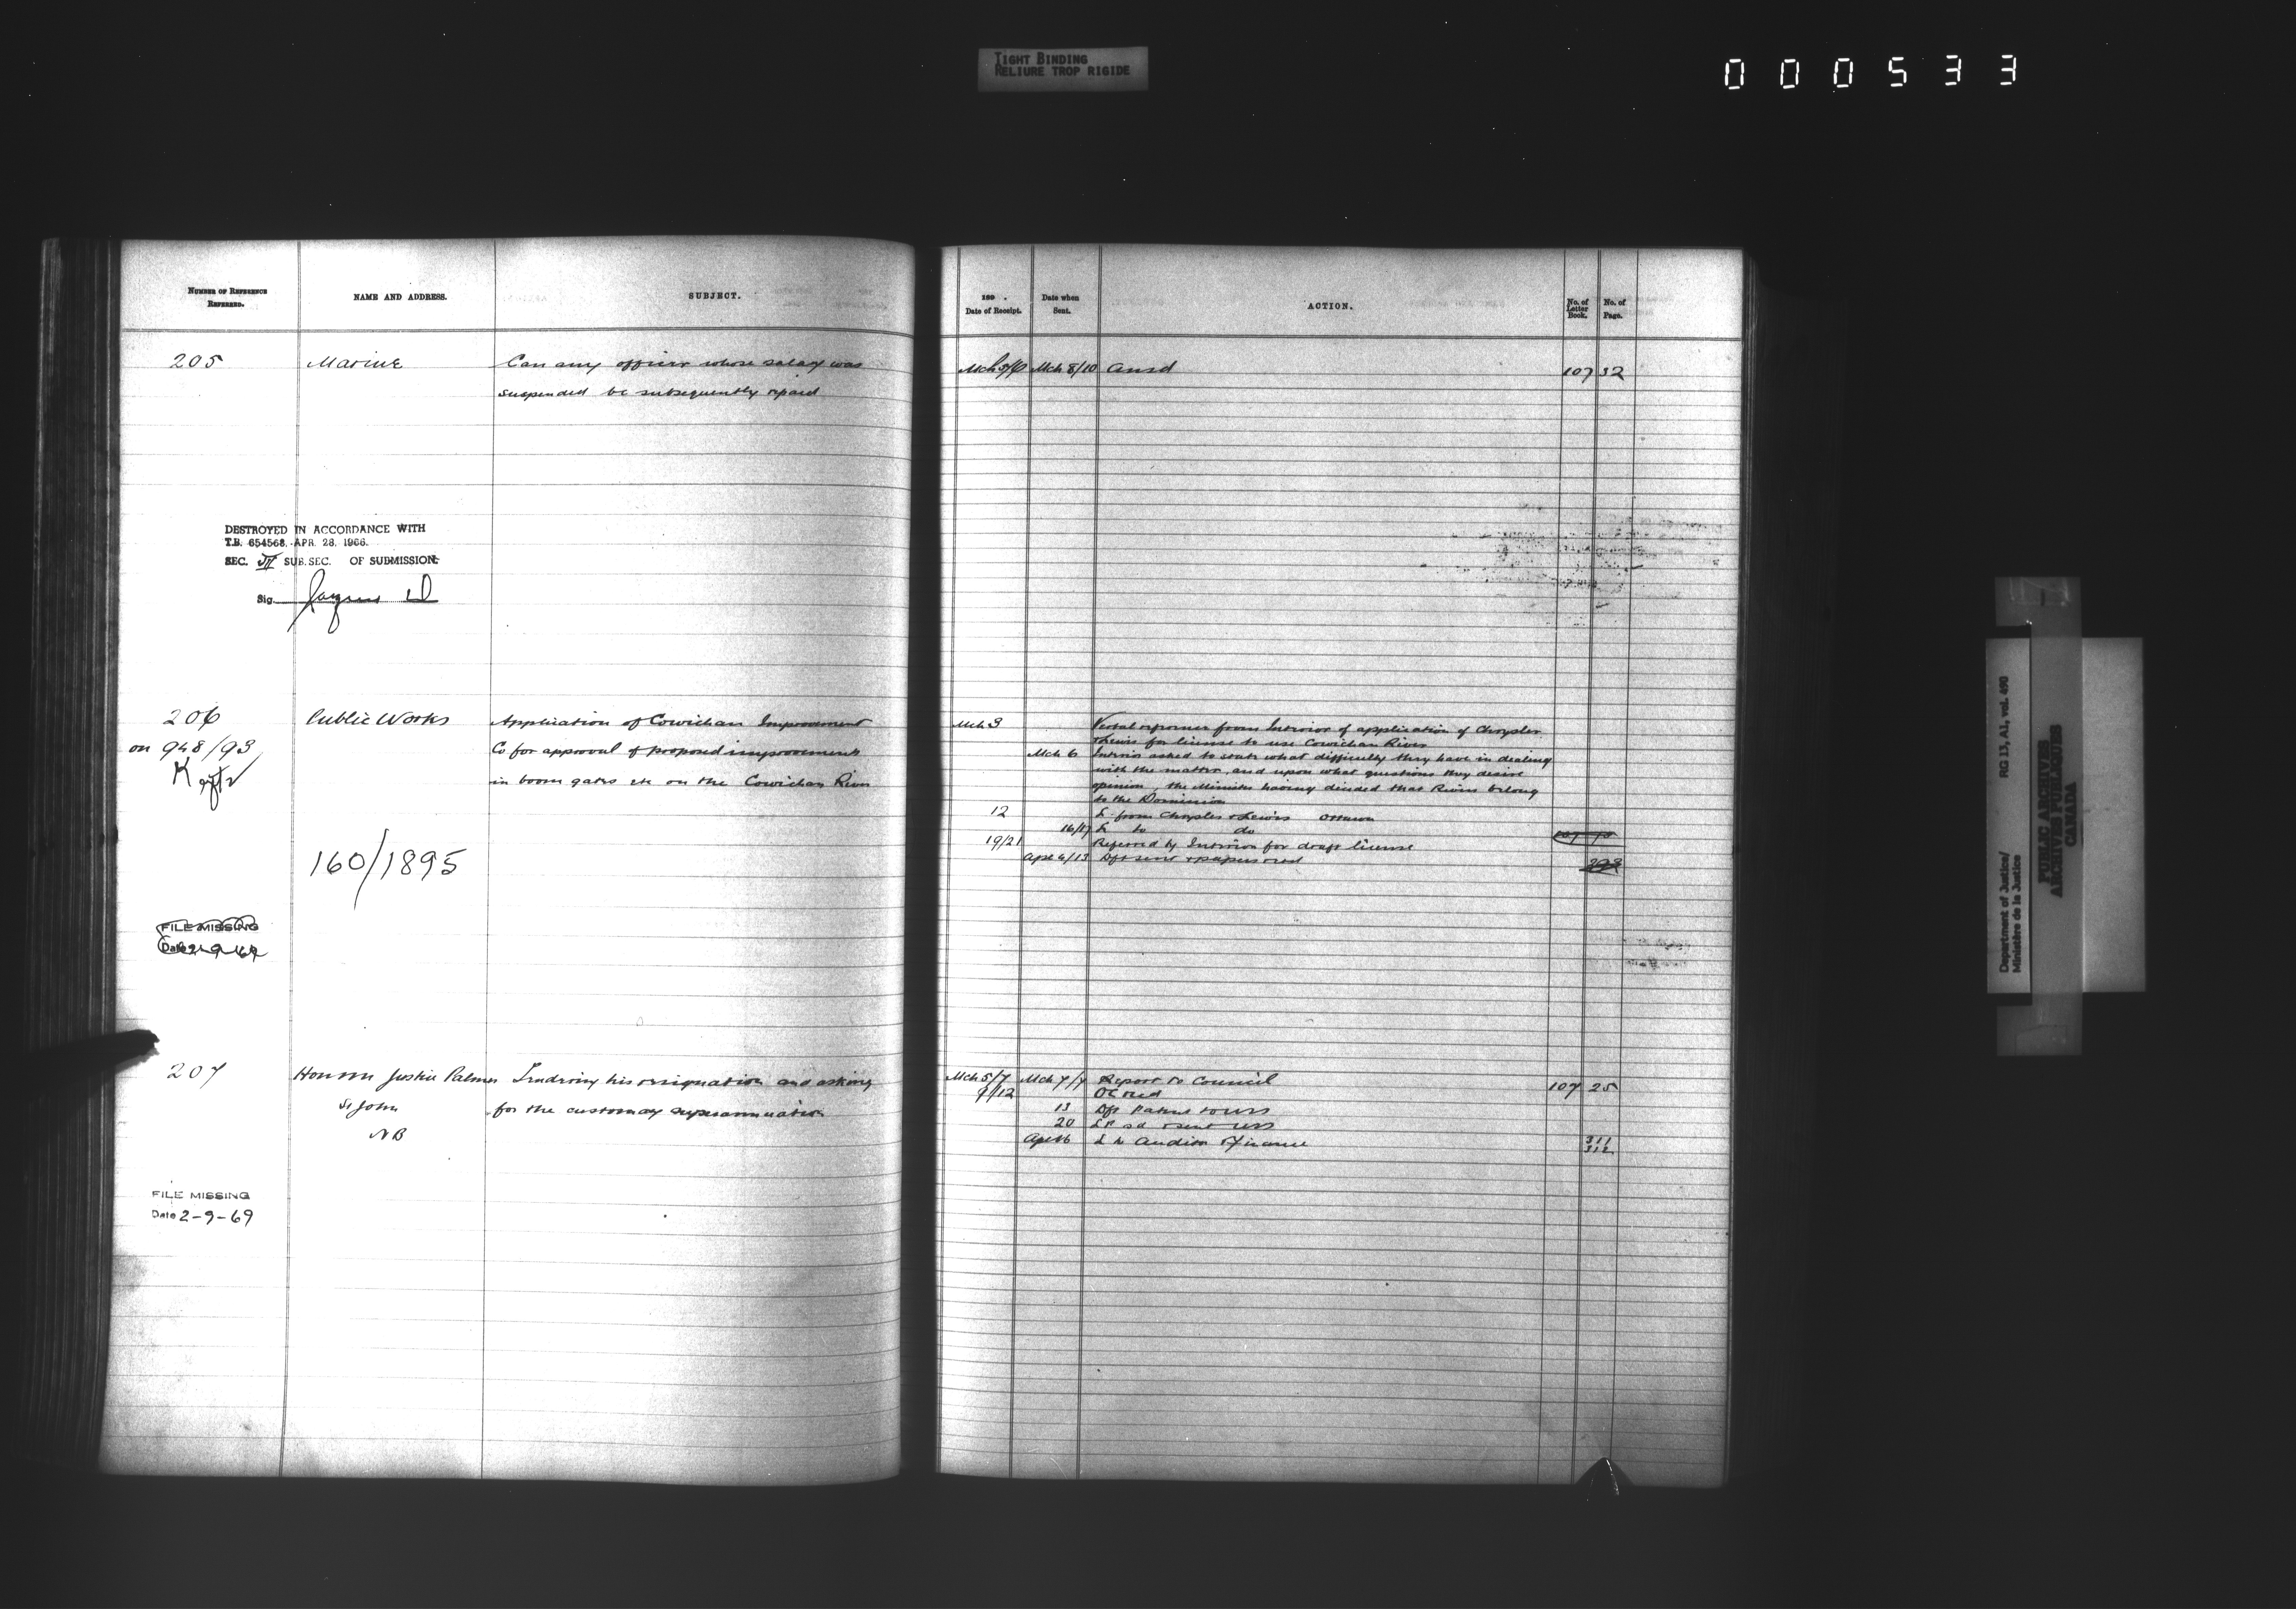 TIGHT BINDING
RELIURE TROP RIGIDE
000533
NUMBER OF REFERENCE REFERRED.
NAME AND ADDRESS.
SUBJECT.
205
Marine
Can any officer whose salary was
suspended be subsequently repaid
DESTROYED IN ACCORDANCE WITH
T.B. 654568. APR. 28. 1966.
SEC. VI SUB. SEC. OF SUBMISSION.
Sig
206
on 948/93
Public Works
Application of Cowichan Improvement
Co for approval of proposed improvements
in boom gates etc on the Cowichan River
160/1895
FILE MISSING
Date 2-9-69
207
Honom Justice Palmer
St John
NB
Tendering his resignation and asking
for the customary superannuation
FILE MISSING
Date 2-9-69
189 .
Date of Receipt.
Date when Sent.
ACTION.
No. of Letter Book.
No. of Page.
Mch 5/6 Mch 8/10 ansd 107 32
Mch 3 from Interior of application of Chrysler
& Lewis for license to use Cowichan River
Mch 6 Interior asked to state what difficulty they have in dealing
with the matter, and upon what questions they desire
opinion, the Minister having decided that Rivers belong
to the Dominion
12 L from Chrysler & Lewis Ottawa
16/17 L to do
19/21 Referred by Interior for draft license
Apl 6/13 Dft sent & papers retd 293
Mch 5/7 Mch 7/7 Report to Council 107 25
9/12 OC recd
13 Dft Patent to USS
20 LP sd & sent USS
Apl 16 L to Auditor & Finance 311
312
Department of Justice/
Ministère de la Justice
RG 13, A1, vol. 490
PUBLIC ARCHIVES
ARCHIVES PUBLIQUES
CANADA